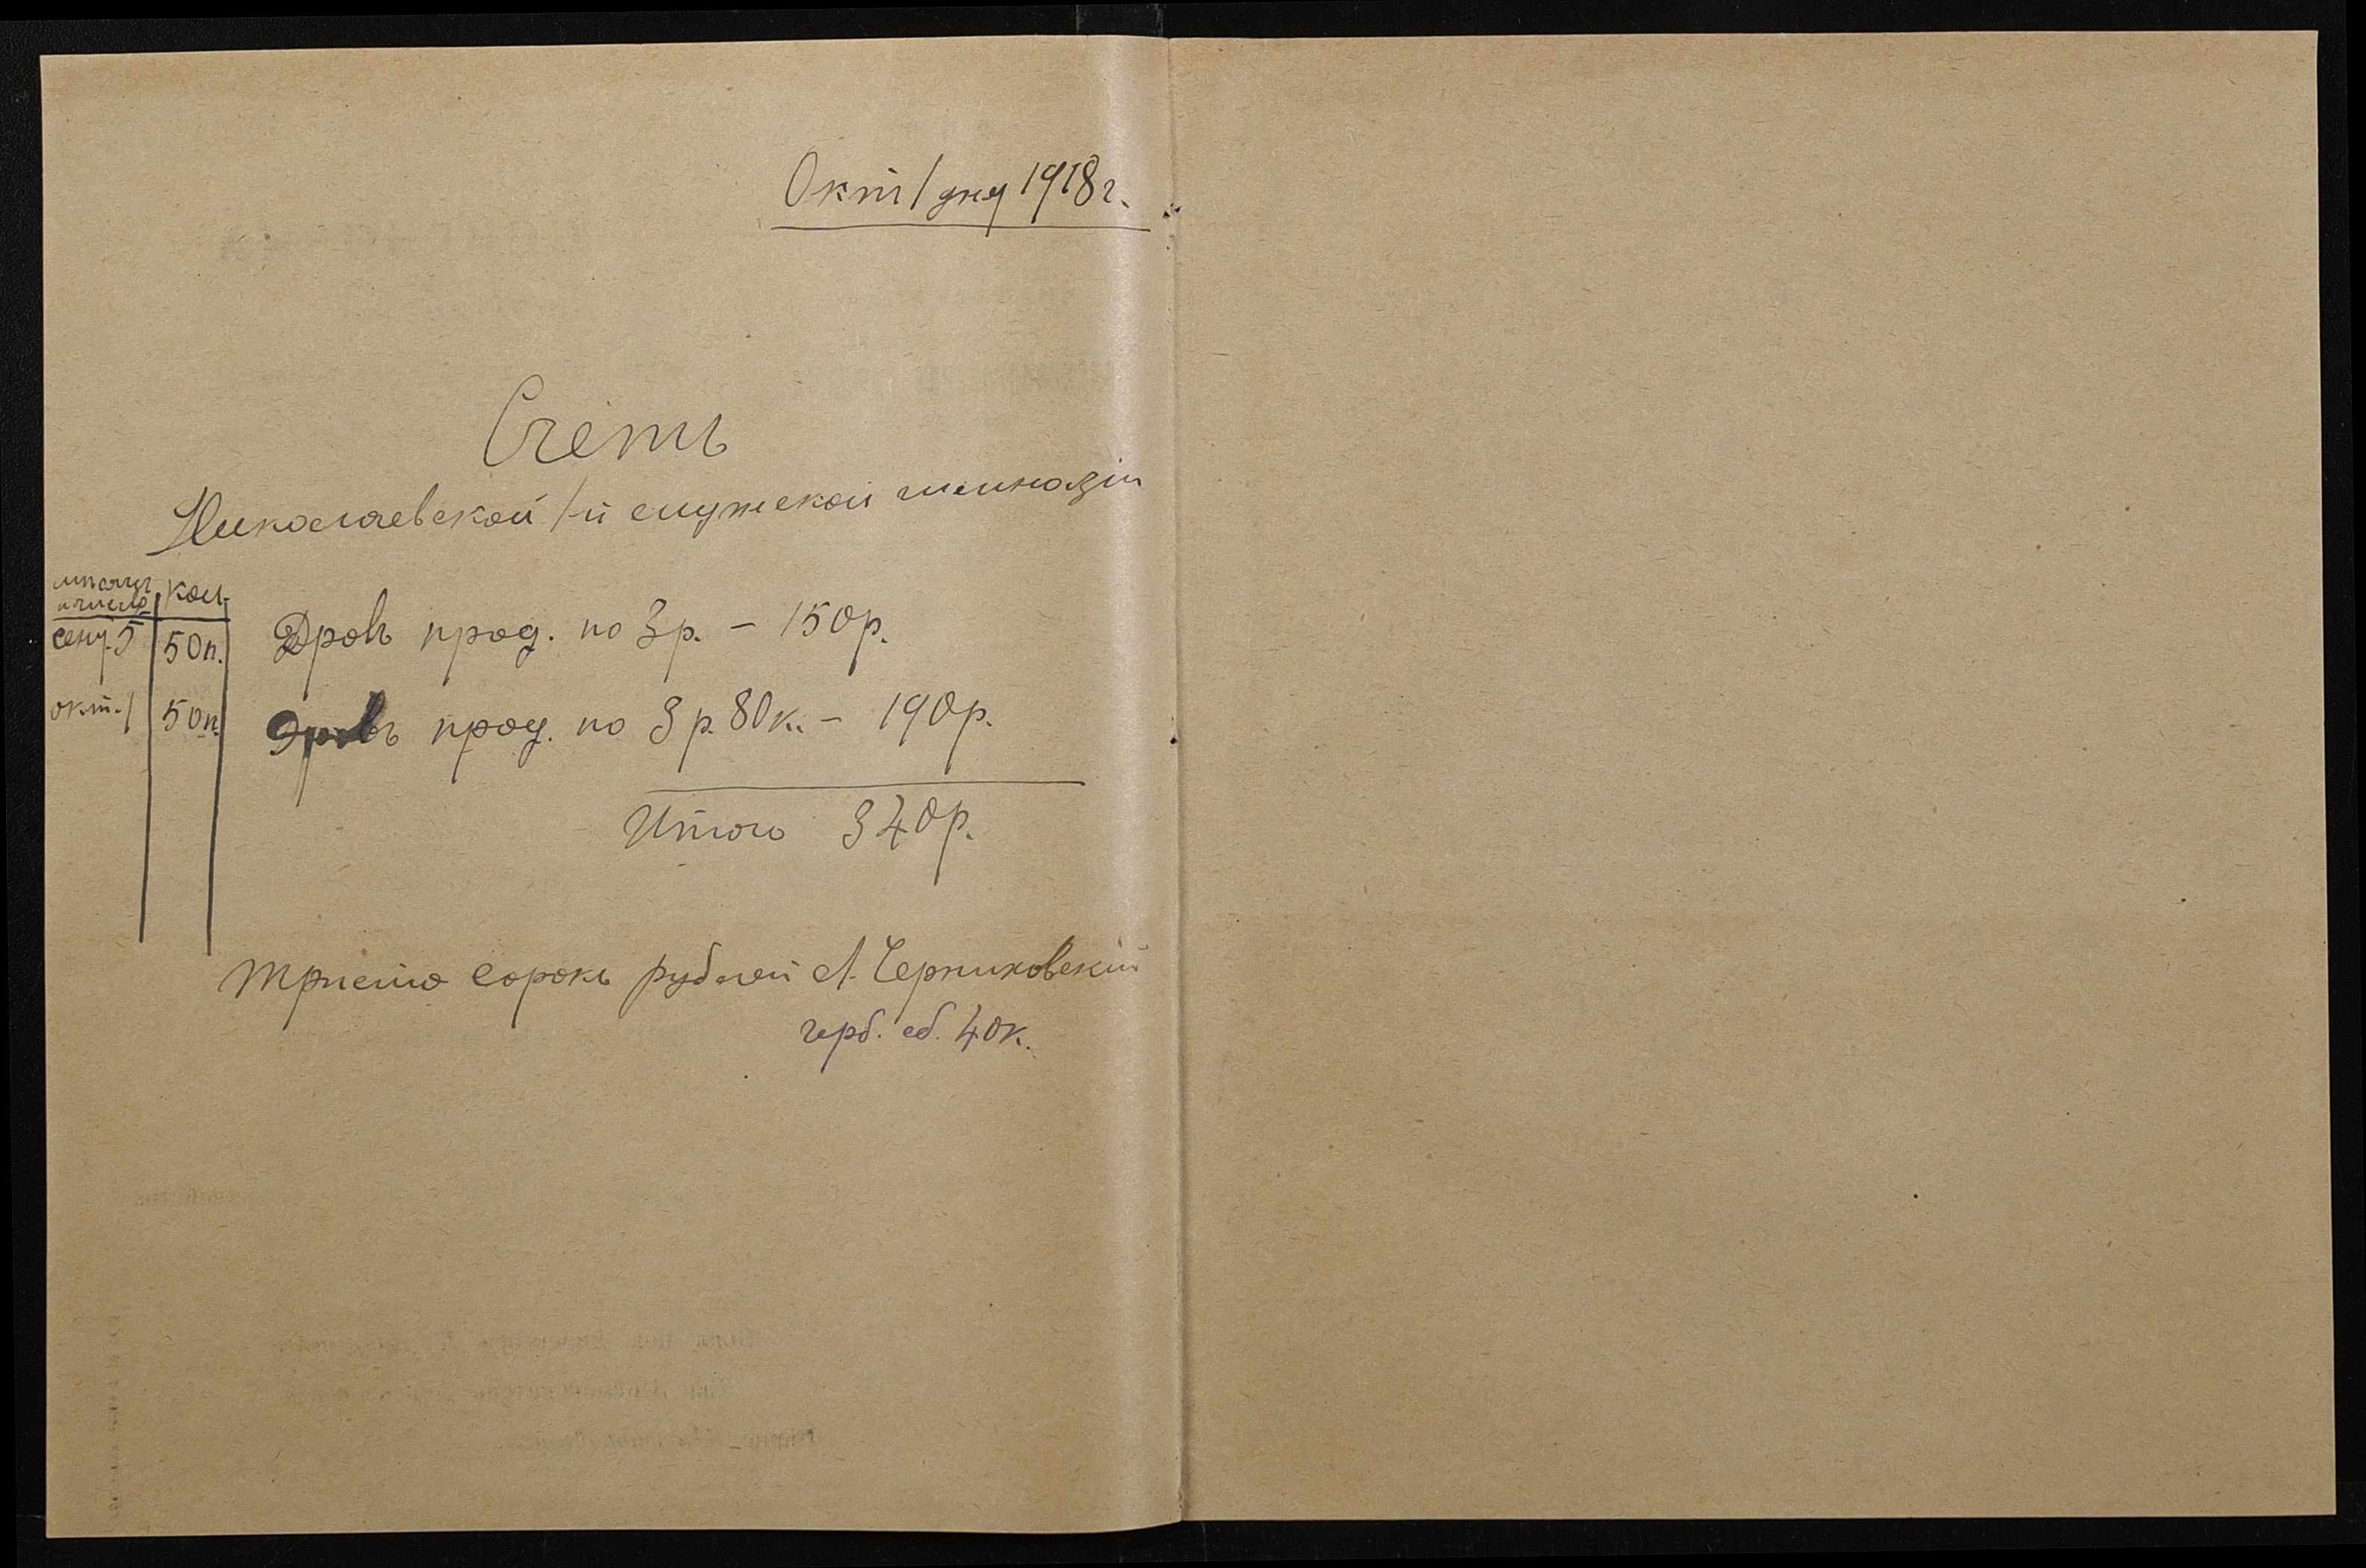 Окт 1 дня 1918 г.
Счетъ
Николаевской 1-й мужской гимназіи
мѣсяцъ и число кол.
сент. 5 50 п. Дровъ прод. по 3 р. – 150 р.
окт. 1 50 п. Дровъ прод. по 3 р. 80 к. – 190 р.
Итого 340 р.
Триста сорокъ рублей А. Черниковскій
герб. сб. 40 к.